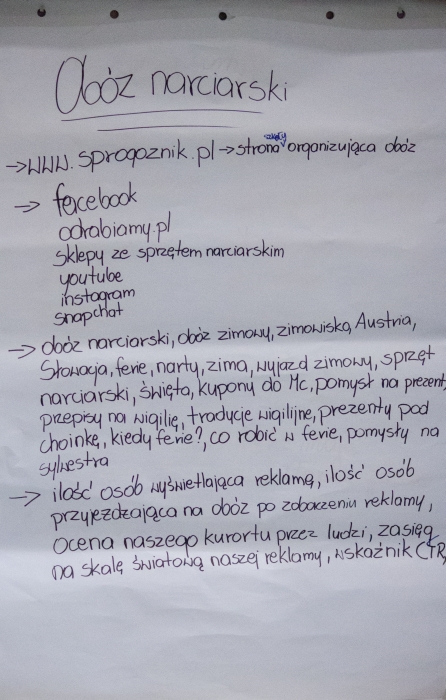 Obóz narciarski
→ www.sprogoznik.pl → strona szkoły organizująca obóz
→ facebook
odrabiamy.pl
sklepy ze sprzętem narciarskim
youtube
instagram
snapchat
→ obóz narciarski, obóz zimowy, zimowisko, Austria,
Słowacja, ferie, narty, zima, wyjazd zimowy, sprzęt
narciarski, święta, kupony do Mc, pomysł na prezent,
przepisy na wigilię, tradycje wigilijne, prezenty pod
choinkę, kiedy ferie?, co robić w ferie, pomysły na
sylwestra
→ ilość osób wyświetlająca reklamę, ilość osób
przyjeżdzająca na obóz po zobaczeniu reklamy,
ocena naszego kurortu przez ludzi, zasięg
na skalę światową naszej reklamy, wskaźnik CTR,